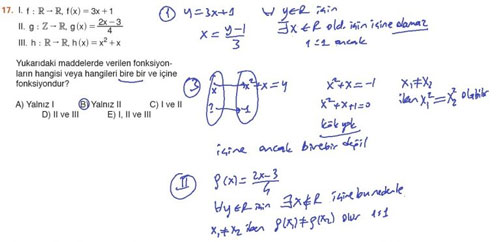 17. I. f : R→R, f(x) = 3x + 1
II. g : Z→R, g(x) = 2x-3/4
III. h : R→R, h(x) = x² + x
Yukarıdaki maddelerde verilen fonksiyon-
ların hangisi veya hangileri bire bir ve içine
fonksiyondur?
A) Yalnız I B) Yalnız II C) I ve II
D) II ve III E) I, II ve III
① y = 3x+1 ∀ y∈R için
x = y-1/3 ∃x∈R old. için içine olamaz
1:1 ancak
③ x x²+x = y x²+x = -1 x₁≠x₂
? -1 x²+x+1=0 iken x₁²=x₂² olabilir
kök yok
içine ancak birebir değil
II f(x) = 2x-3/4
∀y∈R için ∃x∉R içine bu nedenle
x₁≠x₂ iken f(x₁)≠f(x₂) olur 1:1